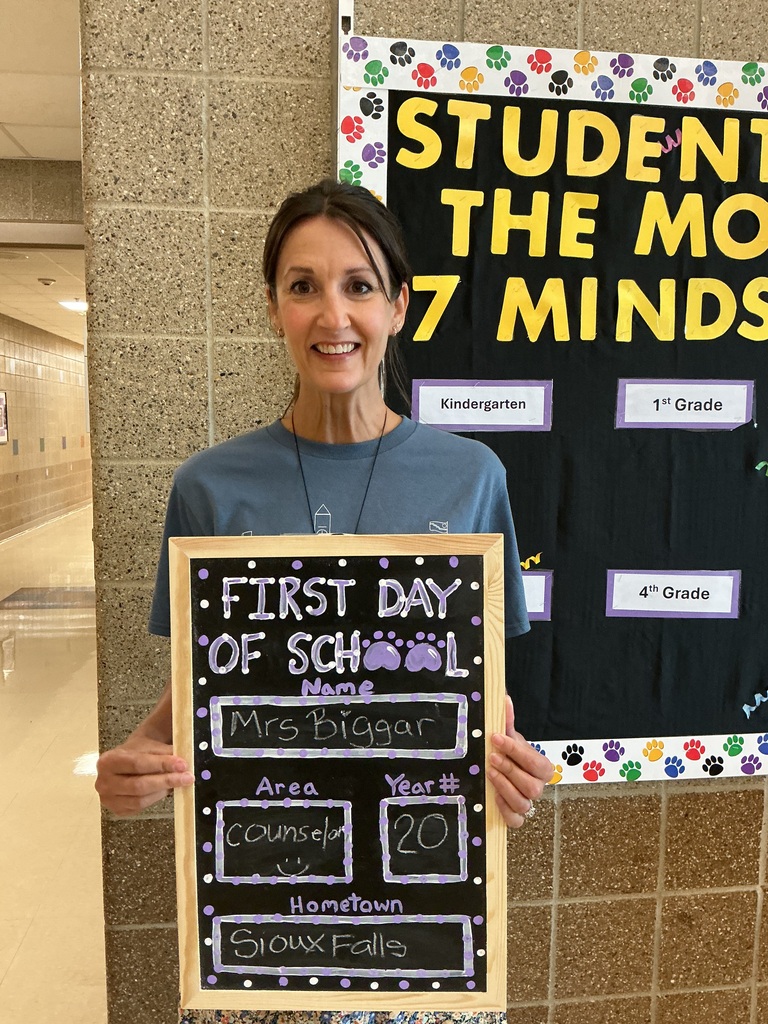 STUDENT
THE MO
7 MINDS
Kindergarten
1st Grade
4th Grade
FIRST DAY
OF SCHOOL
Name
Mrs Biggar
Area
Year #
counselor
20
Hometown
Sioux Falls